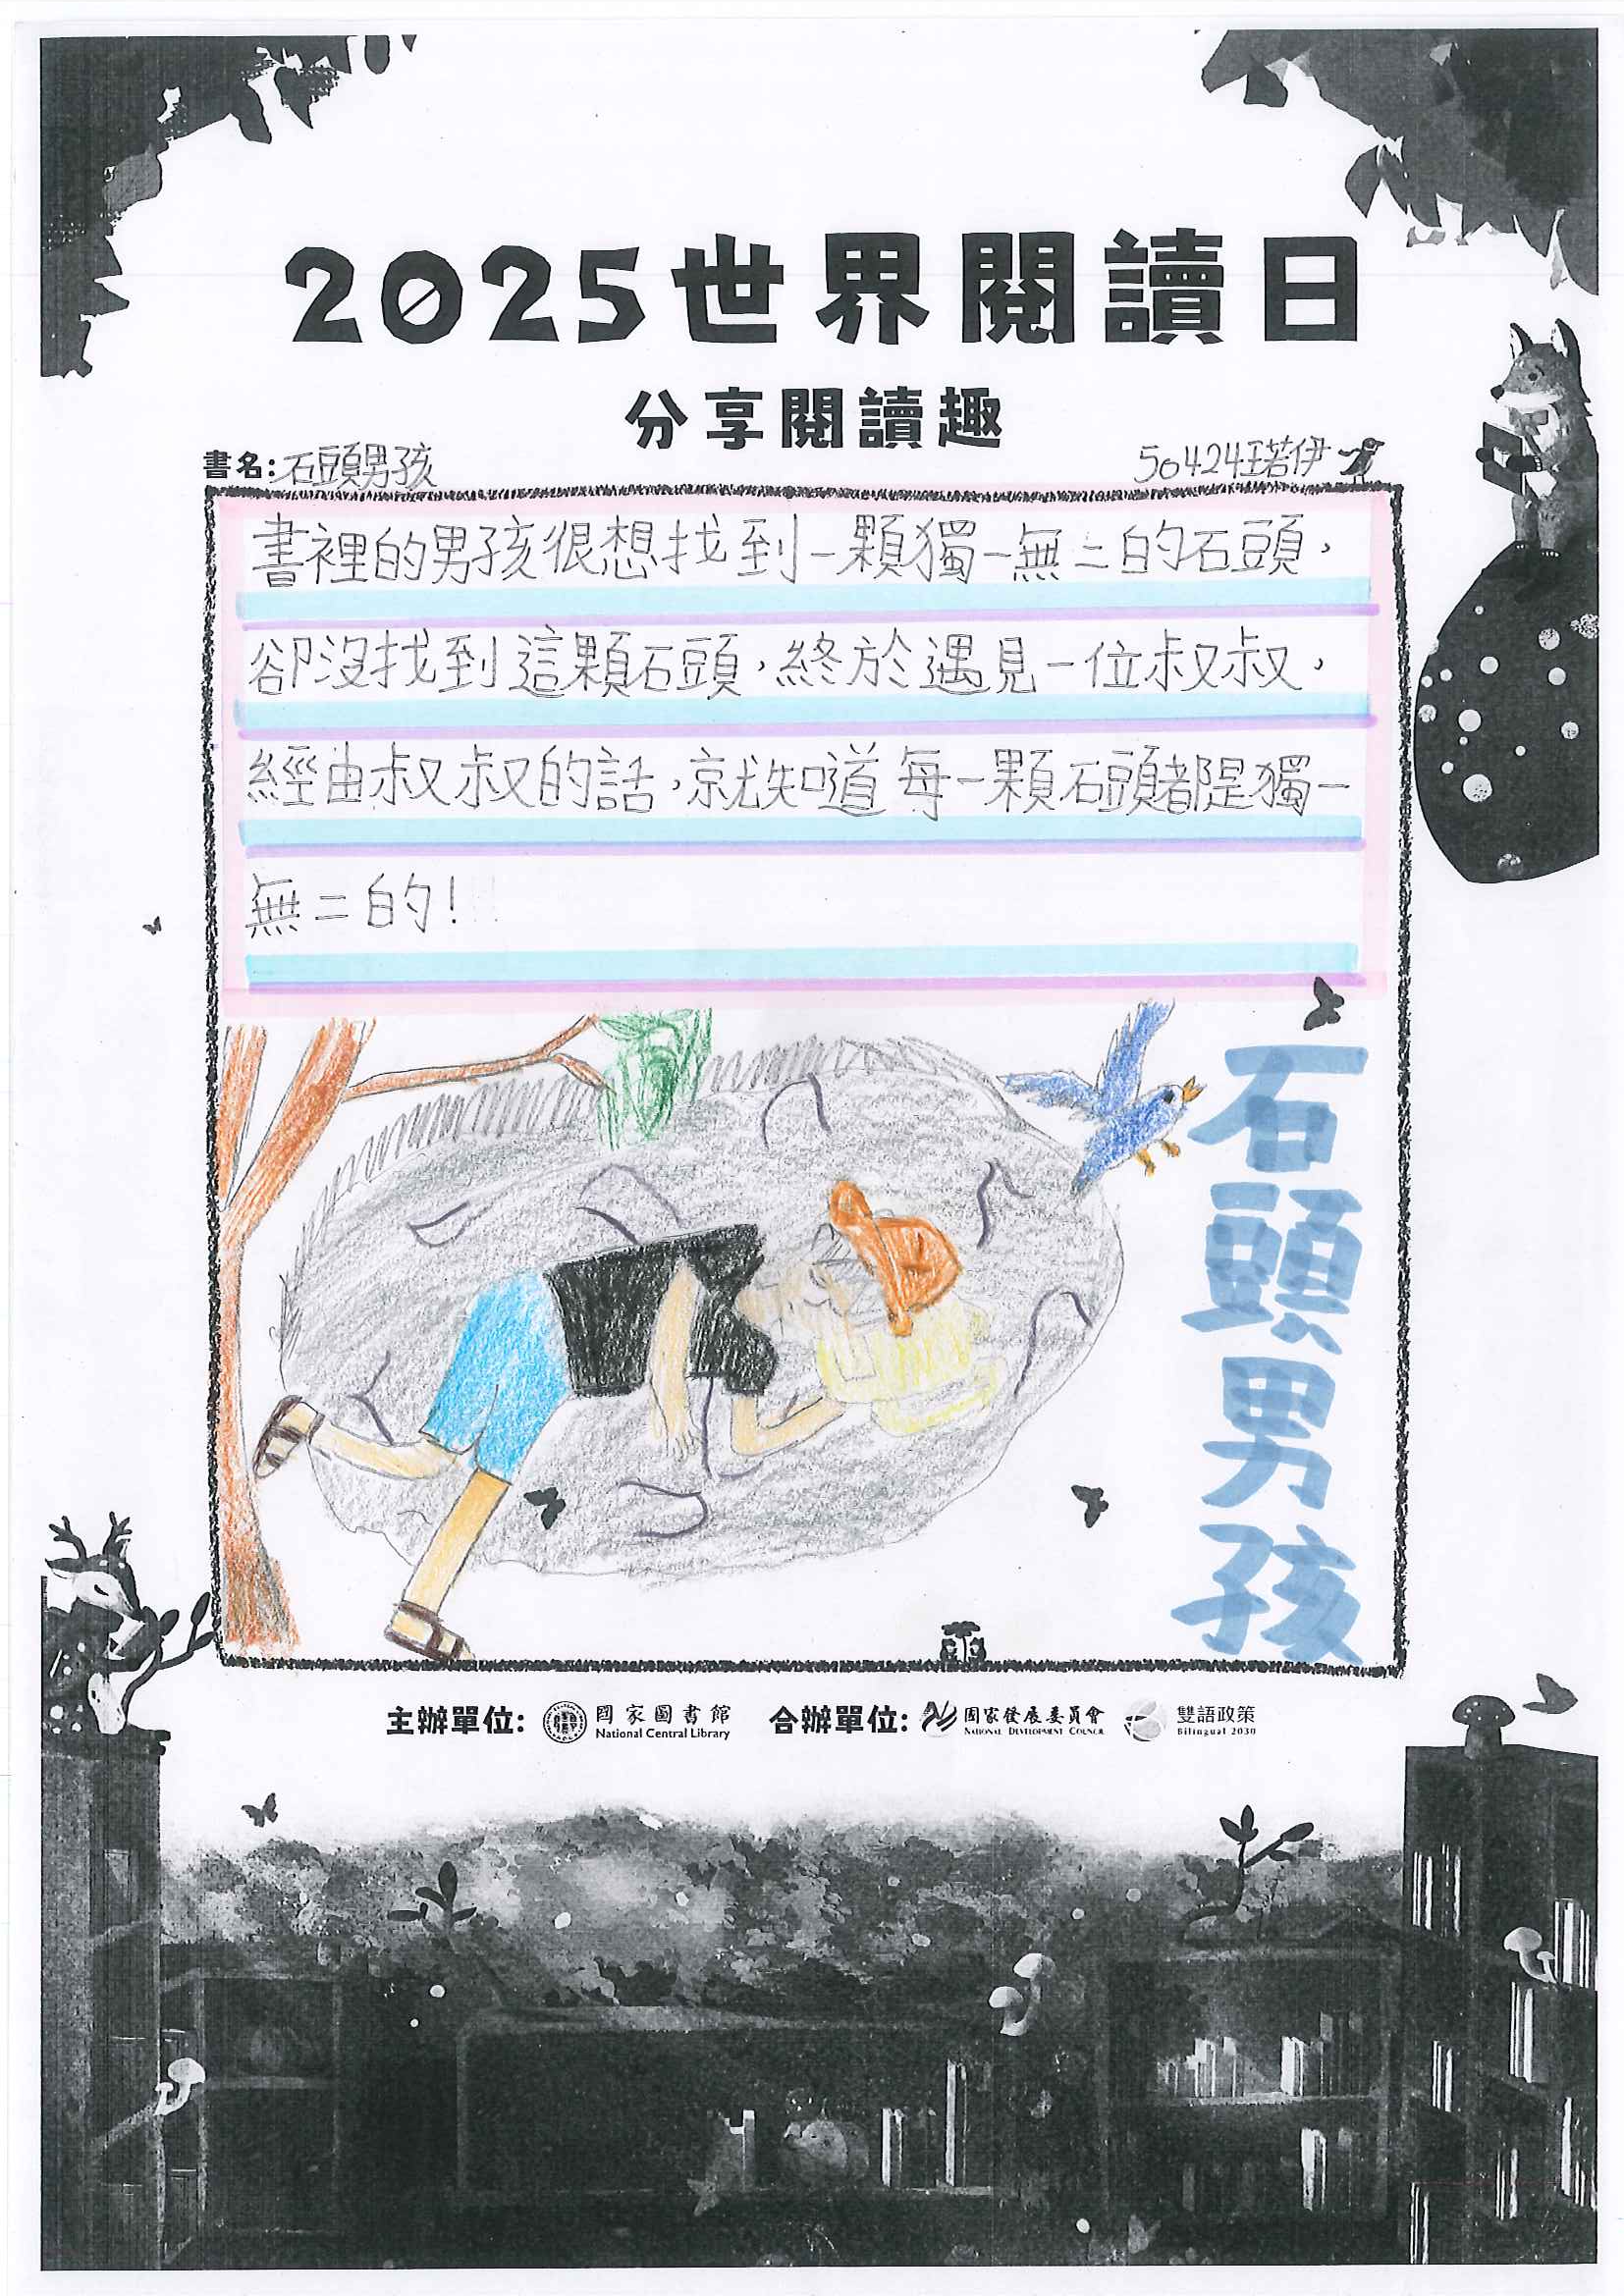 2025世界閱讀日
分享閱讀趣
書名:石頭男孩
50424王若伊
書裡的男孩很想找到一顆獨一無二的石頭,
卻沒找到這顆石頭,終於遇見一位叔叔,
經由叔叔的話,就知道每一顆石頭都是獨一
無二的!
石頭男孩
主辦單位: 國家圖書館 National Central Library 合辦單位: 國家發展委員會 National Development Council 雙語政策 Bilingual 2030